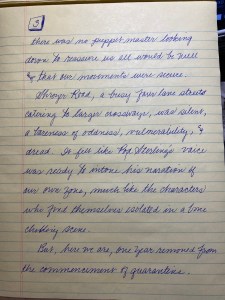 3
there was no puppet master looking
down to reassure us all would be well
& that our movements were secure.
Road, a busy four lane street
catering to larger crossways, was silent,
a bareness of oddness, vulnerability, &
dread. It felt like Rod Sterling's voice
was ready to intone his narration of
our own zone, much like the characters
who find themselves isolated in a time
scene.
But, here we are, one year removed from
the commencement of quarantine.